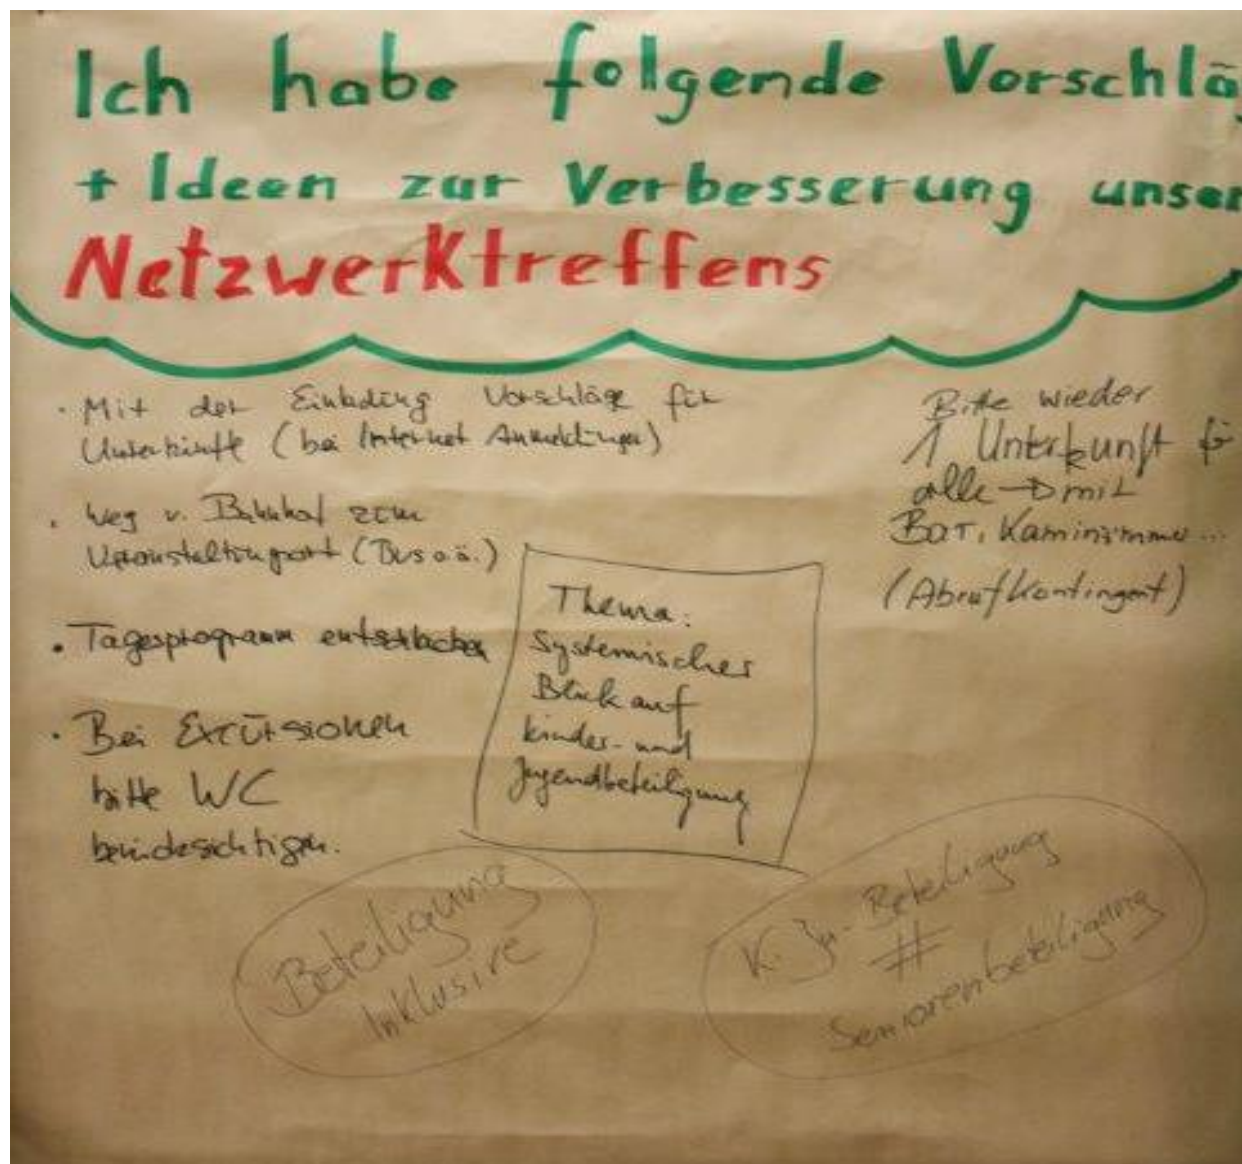 Ich habe folgende Vorschlä
+ Ideen zur Verbesserung unser
Netzwerktreffens
· Mit der Einladung Vorschläge für
Unterkünfte (bei Internet Anmeldungen)
· Weg v. Bahnhof zum
Veranstaltungsort (Bus o.ä.)
· Tagesprogramm
· Bei Excursionen
bitte WC
berücksichtigen.
Thema:
Systemischer
Blick auf
Kinder- und
Jugendbeteiligung
Bitte wieder
1 Unterkunft für
alle → mit
Bar, Kaminzimmer...
(Abrufkontingent)
Beteiligung
Inklusive
K. Ju. Beteiligung
#
Seniorenbeteiligung